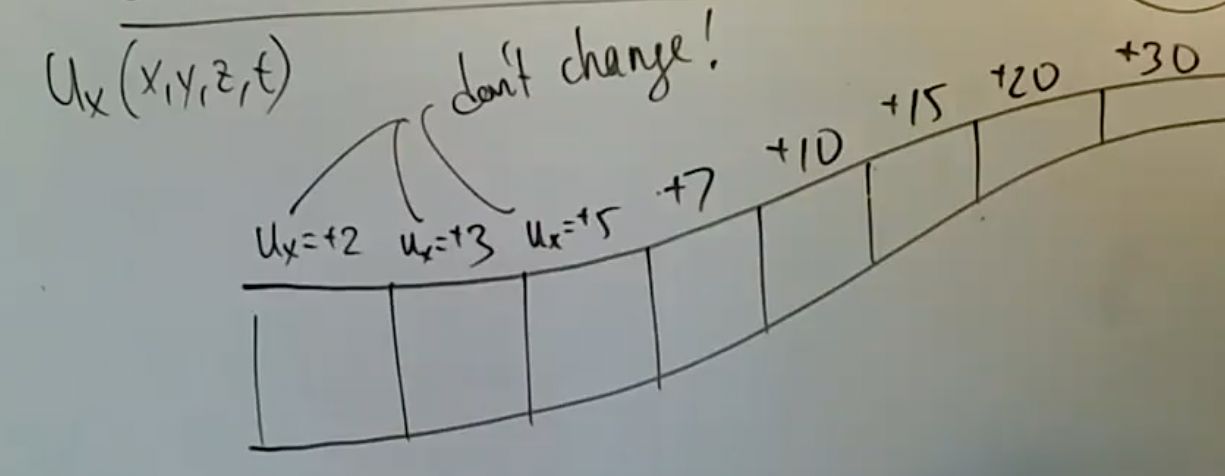 Ux(x,y,z,t)
don't change!
Ux=+2 ux=+3 ux=+5 +7 +10 +15 +20 +30